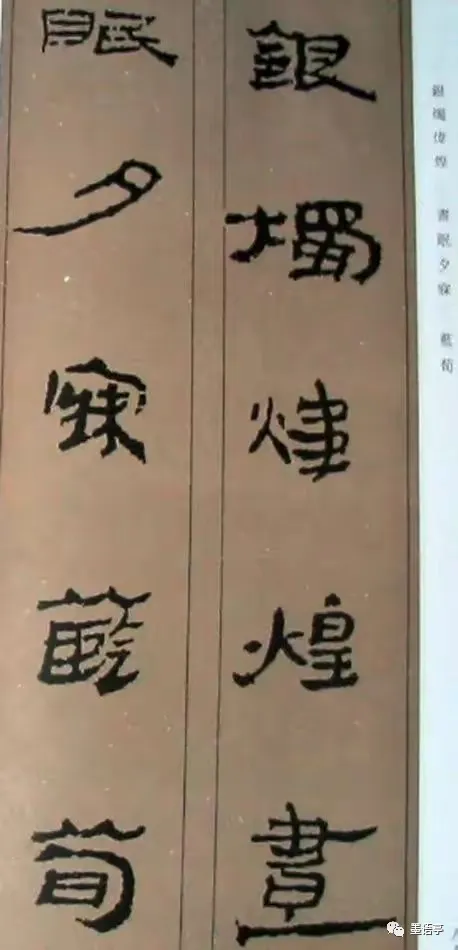 銀燭煒煌晝
眠夕寐藍荀
銀燭煒煌 晝眠夕寐 藍荀
墨悟亭